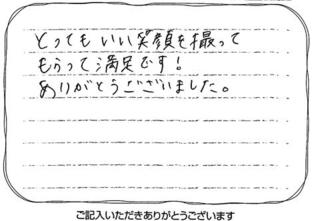 とってもいい笑顔を撮って
もらって満足です！
ありがとうございました。
ご記入いただきありがとうございます